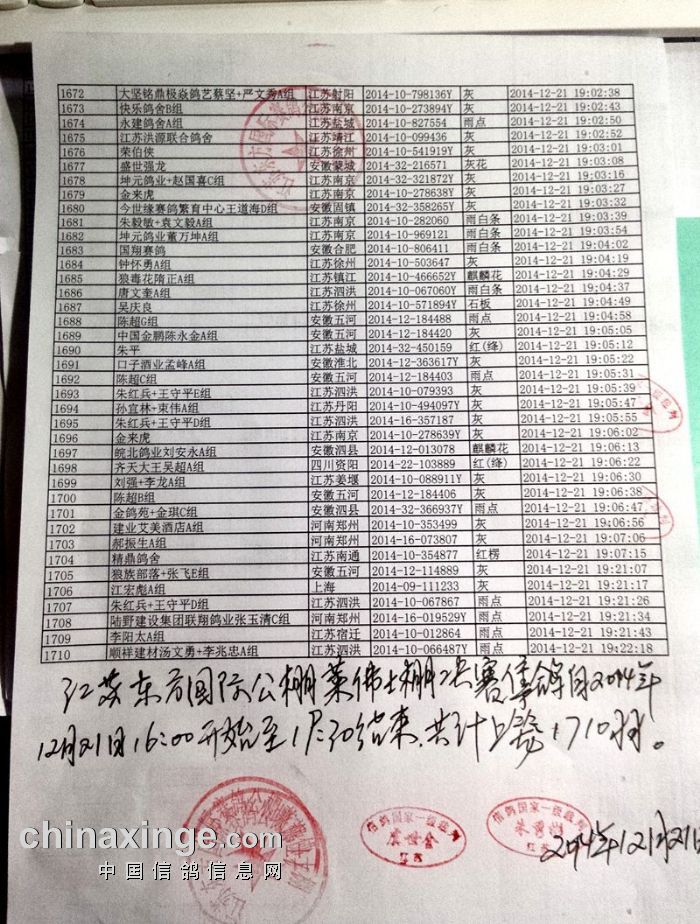 1672 大坚铭鼎极焱鸽艺蔡坚+严文秀A组 江苏射阳 2014-10-798136Y 灰 2014-12-21 19:02:38
1673 快乐鸽舍B组 江苏南京 2014-10-273894Y 灰 2014-12-21 19:02:43
1674 永建鸽舍A组 江苏盐城 2014-10-827554 雨点 2014-12-21 19:02:50
1675 江苏洪源联合鸽舍 江苏靖江 2014-10-099436 灰 2014-12-21 19:02:52
1676 荣伯侠 江苏徐州 2014-10-541919Y 灰 2014-12-21 19:03:01
1677 盛世强龙 安徽蒙城 2014-32-216571 灰花 2014-12-21 19:03:08
1678 坤元鸽业+赵国喜C组 江苏南京 2014-32-321872Y 灰 2014-12-21 19:03:16
1679 金来虎 江苏南京 2014-10-278638Y 灰 2014-12-21 19:03:27
1680 今世缘赛鸽繁育中心王道海D组 安徽固镇 2014-32-358265Y 灰 2014-12-21 19:03:32
1681 朱毅敏+袁文毅A组 江苏南京 2014-10-282060 雨白条 2014-12-21 19:03:39
1682 坤元鸽业董万坤A组 江苏南京 2014-10-969121 雨白条 2014-12-21 19:03:54
1683 国翔赛鸽 安徽合肥 2014-10-806411 雨白条 2014-12-21 19:04:02
1684 钟怀勇A组 江苏徐州 2014-10-503647 灰 2014-12-21 19:04:19
1685 狼毒花隋正A组 江苏镇江 2014-10-466652Y 麒麟花 2014-12-21 19:04:29
1686 唐文奎A组 江苏泗洪 2014-10-067060Y 雨白条 2014-12-21 19:04:37
1687 吴庆良 江苏徐州 2014-10-571894Y 石板 2014-12-21 19:04:49
1688 陈超G组 安徽五河 2014-12-184488 雨点 2014-12-21 19:04:58
1689 中国金鹏陈永金A组 安徽五河 2014-12-184420 灰 2014-12-21 19:05:05
1690 朱平 江苏盐城 2014-32-450159 红(绛) 2014-12-21 19:05:12
1691 口子酒业孟峰A组 安徽淮北 2014-12-363617Y 灰 2014-12-21 19:05:22
1692 陈超C组 安徽五河 2014-12-184403 雨点 2014-12-21 19:05:31
1693 朱红兵+王守平E组 江苏泗洪 2014-10-079393 灰 2014-12-21 19:05:39
1694 孙宜林+束伟A组 江苏丹阳 2014-10-494097Y 灰 2014-12-21 19:05:47
1695 朱红兵+王守平D组 江苏泗洪 2014-16-357187 灰 2014-12-21 19:05:55
1696 金来虎 江苏南京 2014-10-278639Y 灰 2014-12-21 19:06:02
1697 皖北鸽业刘安永A组 安徽泗县 2014-12-013078 麒麟花 2014-12-21 19:06:13
1698 齐天大王吴超A组 四川资阳 2014-22-103889 红(绛) 2014-12-21 19:06:22
1699 刘强+李龙A组 江苏姜堰 2014-10-088911Y 灰 2014-12-21 19:06:30
1700 陈超B组 安徽五河 2014-12-184406 灰 2014-12-21 19:06:38
1701 金鸽苑+金琪C组 安徽泗县 2014-32-366937Y 雨点 2014-12-21 19:06:47
1702 建业艾美酒店A组 河南郑州 2014-10-353499 灰 2014-12-21 19:06:56
1703 郝振生A组 河南郑州 2014-16-073807 灰 2014-12-21 19:07:06
1704 精鼎鸽舍 江苏南通 2014-10-354877 红楞 2014-12-21 19:07:15
1705 狼族部落+张飞E组 安徽五河 2014-12-114889 灰 2014-12-21 19:21:07
1706 江宏彪A组 上海 2014-09-111233 灰 2014-12-21 19:21:17
1707 朱红兵+王守平D组 江苏泗洪 2014-10-067867 雨点 2014-12-21 19:21:26
1708 陆野建设集团联翔鸽业张玉清C组 河南郑州 2014-16-019529Y 雨点 2014-12-21 19:21:34
1709 李阳太A组 江苏宿迁 2014-10-012864 雨点 2014-12-21 19:21:43
1710 顺祥建材汤文勇+李兆忠A组 江苏泗洪 2014-10-066487Y 雨点 2014-12-21 19:22:18
江苏东方国际公棚莱伟士棚决赛集鸽自2014年
12月21日16:00开始至19:30结束,共计上笼1710羽。
信鸽国家一级裁判
江苏
信鸽国家一级裁判
江苏
2014年12月21日
chinaxinge.com
中国信鸽信息网